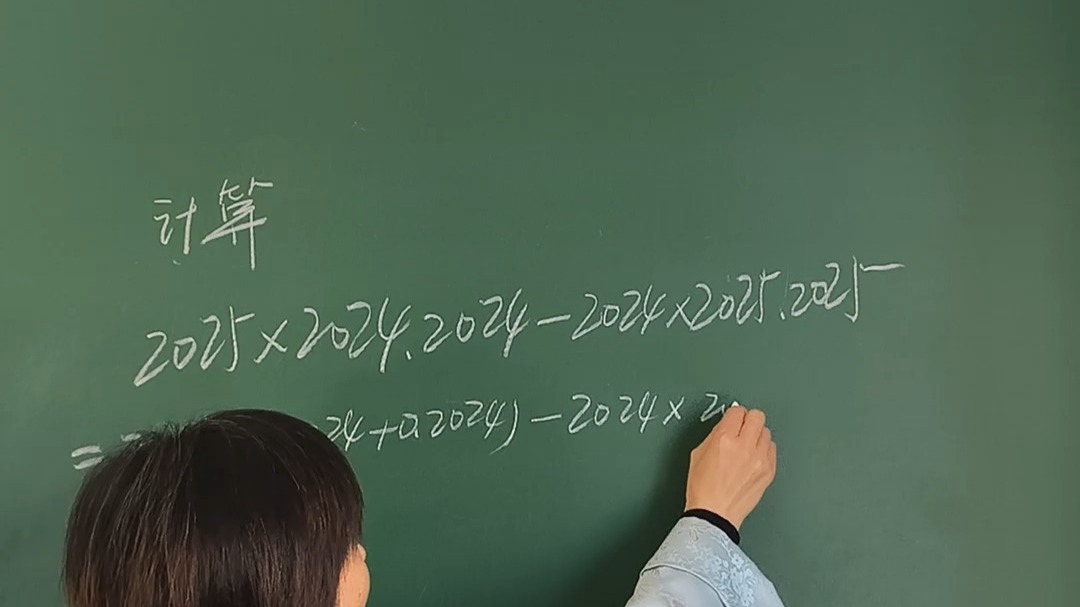 计算
2025×2024.2024-2024×2025.2025
= 24+0.2024)-2024×